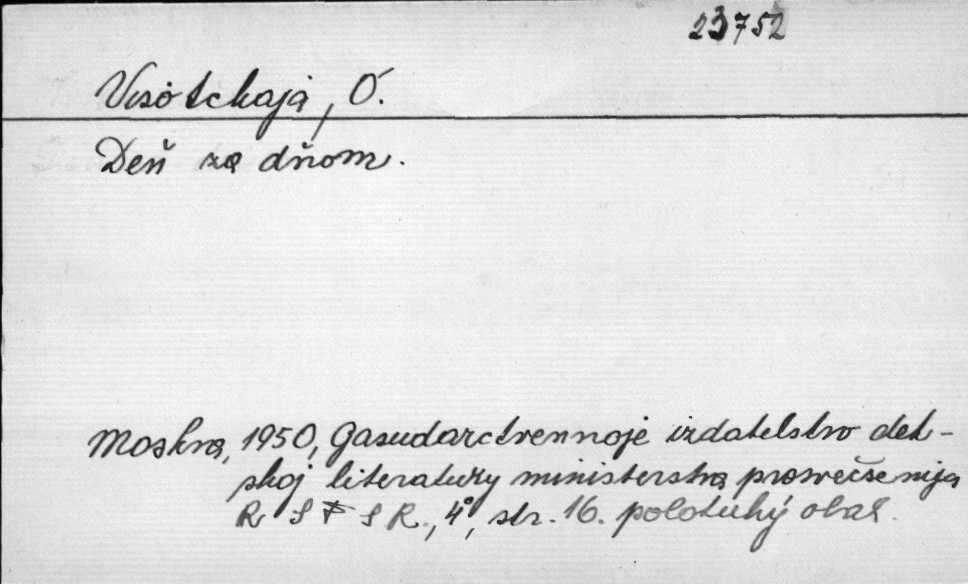 23752
Visotckaja, O.
Deň za dňom.
Moskva, 1950, Gasudarctvennoje izdatelstvo det-
skoj literatury ministerstva prosvečsenija
R S F S R., 4°, str. 16. polotuhý obal.